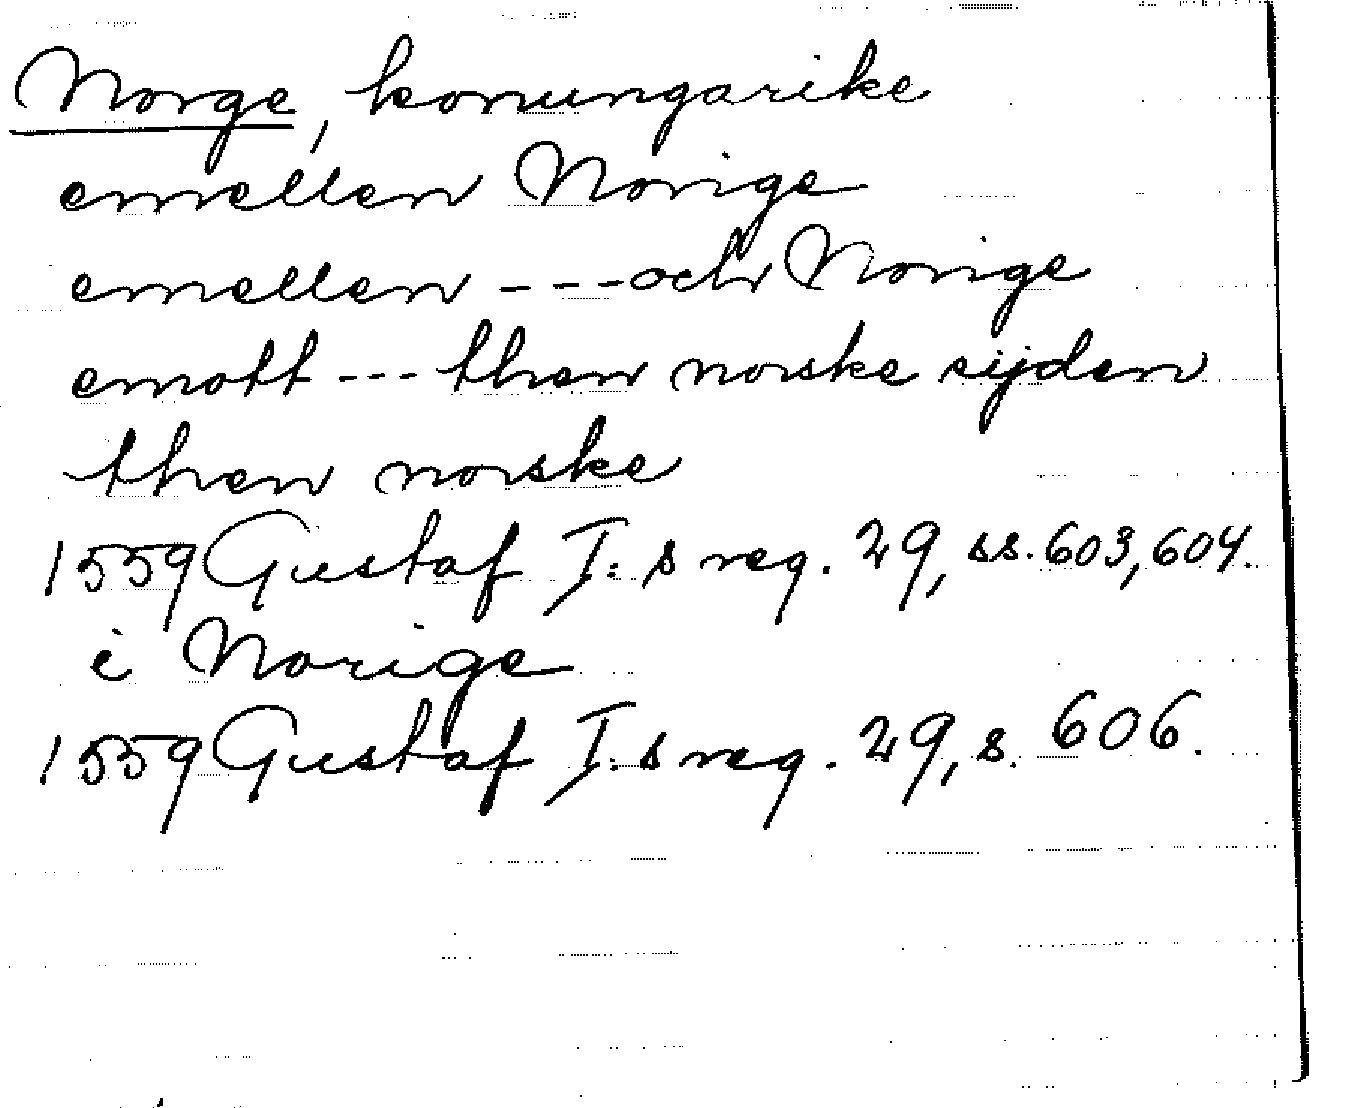 Norge, konungarike
emellen Norige
emellen --- och Norige
emott --- then norske sijden
then norske
1559 Gustaf I:s reg. 29, ss. 603, 604.
i Norige
1559 Gustaf I:s reg. 29, s. 606.